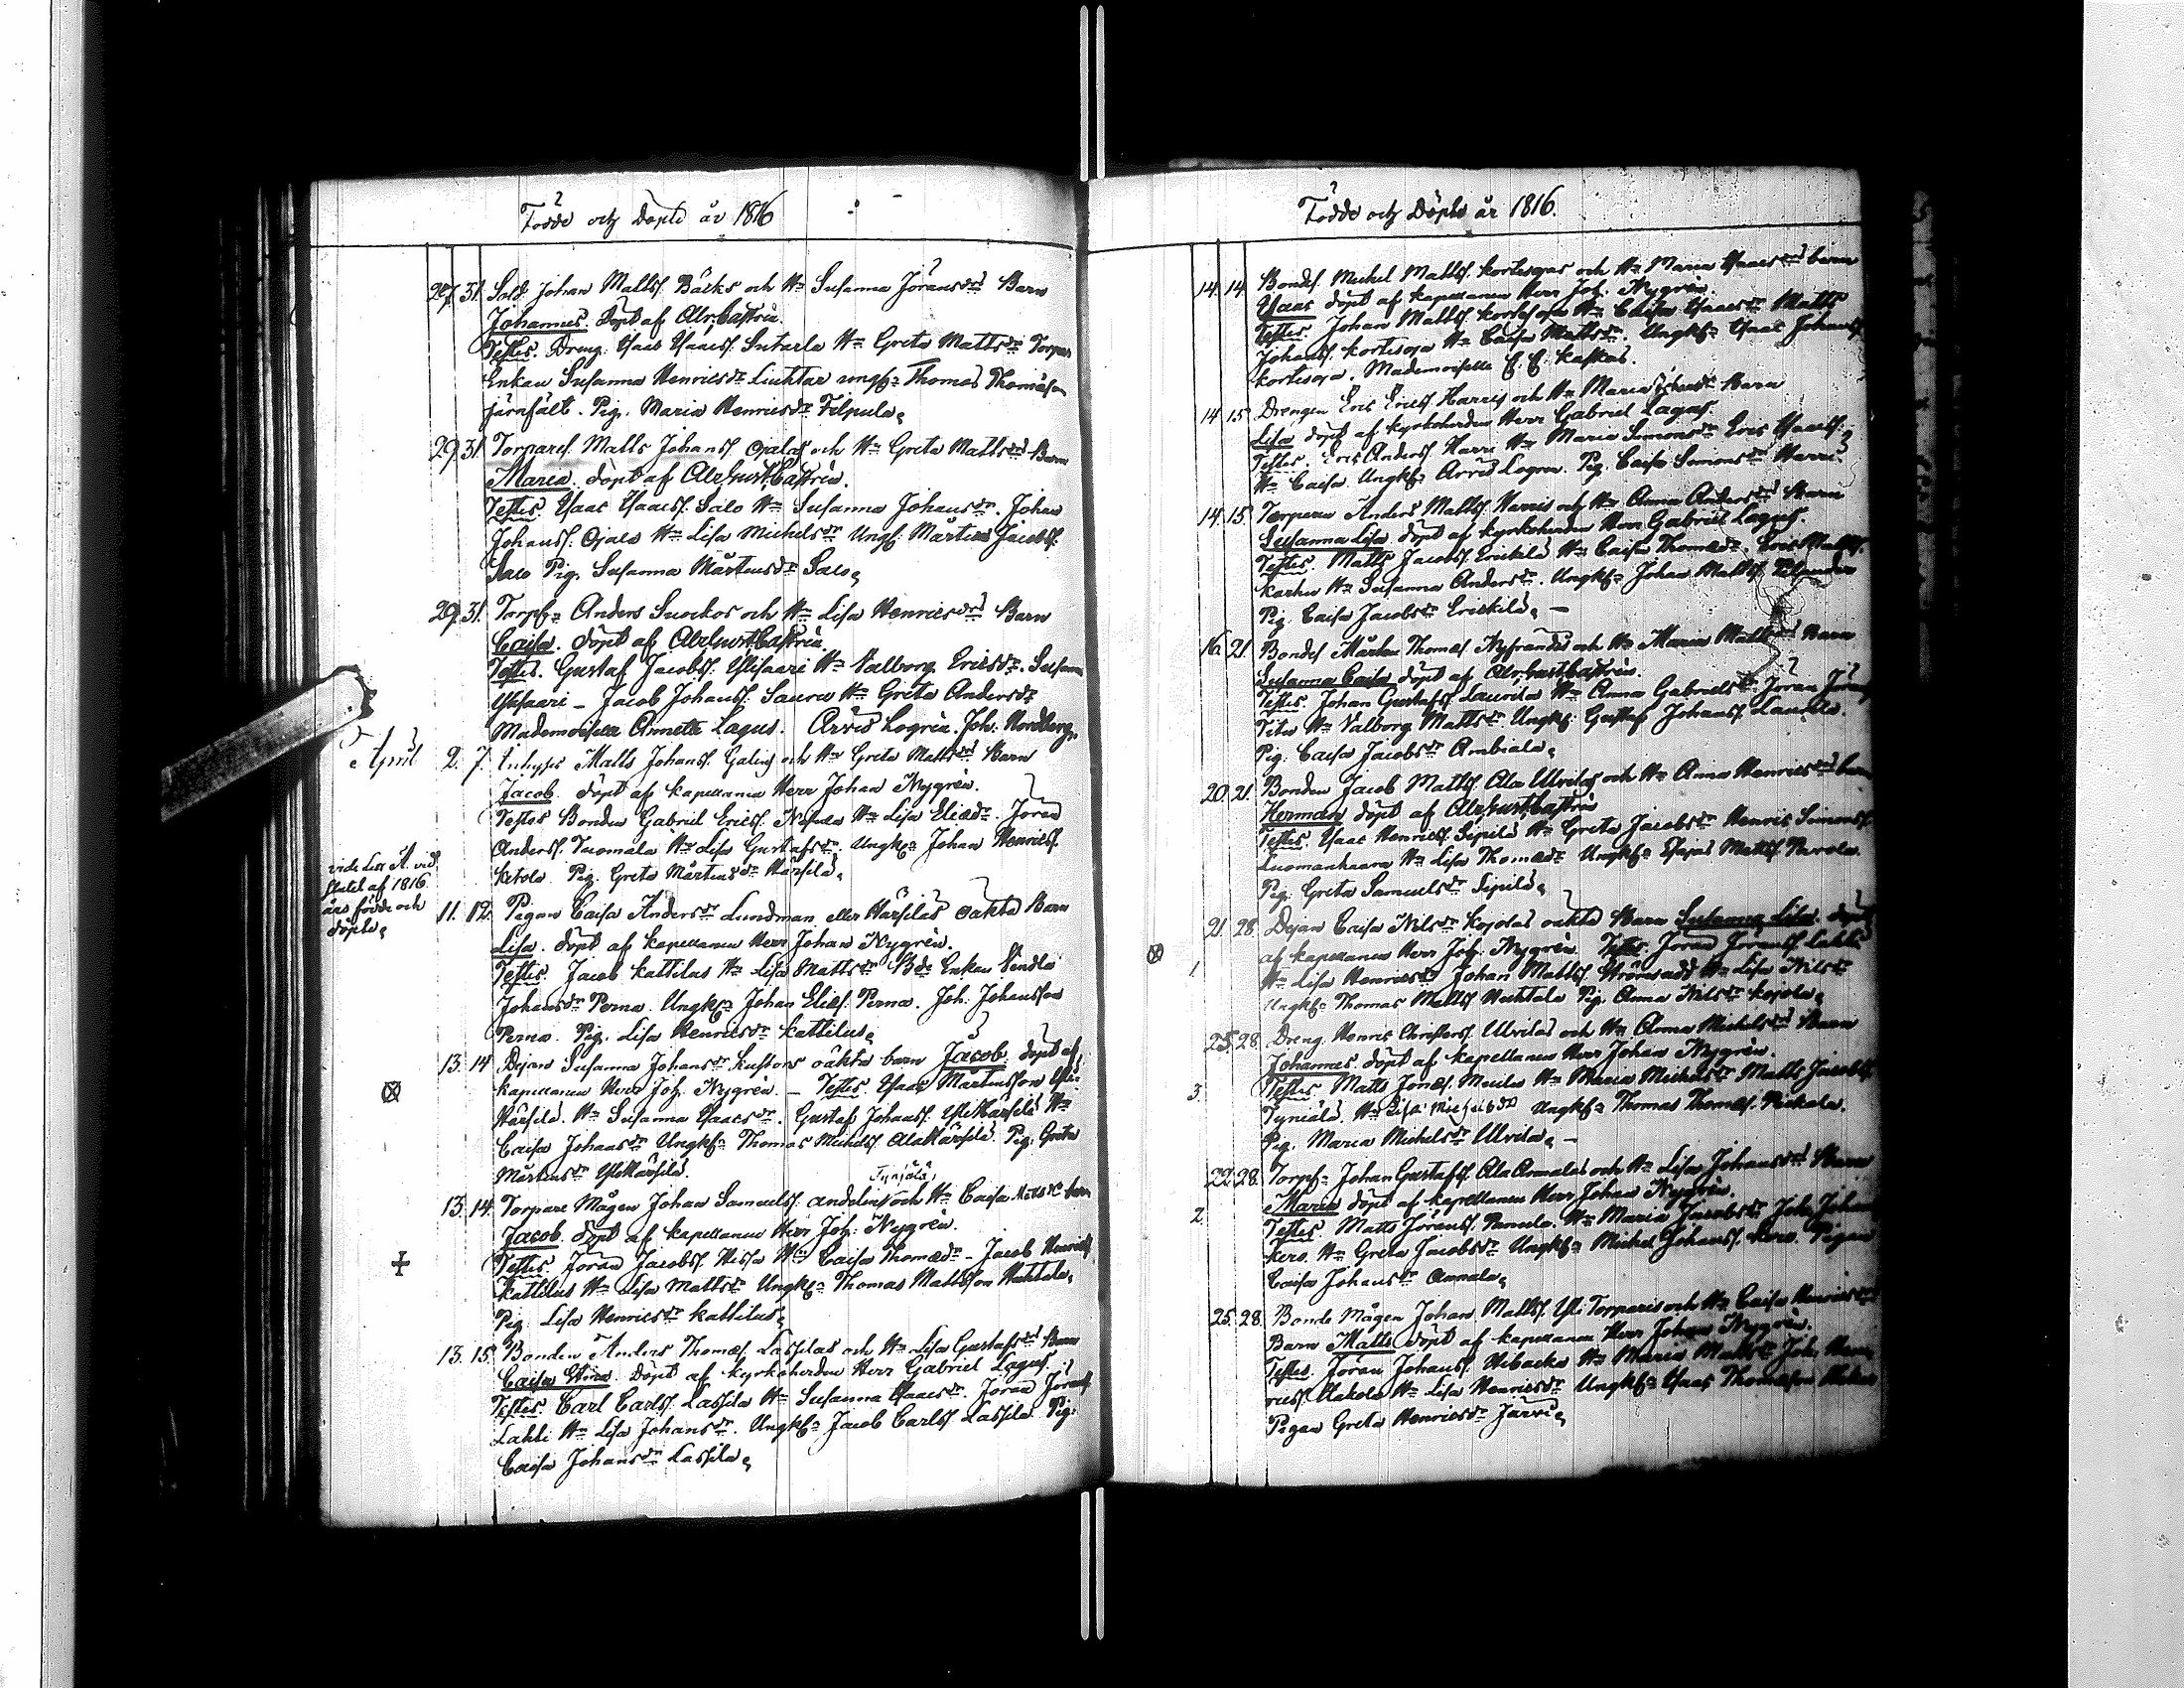 Födde och Döpte år 1816
27. 31. Sold. Johan Matts. Bäcks och H. Susanna Jöransdrs Barn
Johannes. döpt af Castrén.
Testes. Dreng. Isaac Isaacs. Sutarla H. Greta Mattsdr Torpar
Enkan Susanna Henricsdr Luhtar ungk. Thomas Thomason
järnfält. Pig. Maria Henricsdr Filpula.
29. 31. Torpares Matts Johans. Ojalas och H. Greta Mattsdrs Barn
Maria. döpt af Castrén.
Testes. Isaac Isaacs. Salo H. Susanna Johansdr. Johan
Johans. Ojala H. Lisa Michelsdr Ungk. Mårten Jacobs.
Salo Pig. Susanna Mårtensdr Salo.
29. 31. Torp. Anders Suockos och H. Lisa Henricsdrs Barn
Caisa. döpt af Castrén.
Testes. Gustaf Jacobs. Ylisaari H. Valborg Ericsdr. Susanna
Ylisaari _ Jacob Johans. Saura H. Greta Andersdr
Mademoiselle Annette Lagus. Arvid Logrén. Joh. Nordberg.
April 2. 7. Inhyses Matts Johans. Galins och H. Greta Mattsdrs Barn
Jacob. döpt af kapellanen Herr Johan Nygrén.
Testes Bonden Gabriel Erics. H. Lisa Eliedr. Jöran
Anders. Tuomala H. Lisa Gustafsdr. Ungk. Johan Henrics.
Ketola. Pig. Greta Mårtensdr Härsilä.
vide Litt A. vid
slutet af 1816
års födde och
döpte.
11. 12. Pigan Caisa Andersdr Lundman eller Härsiläs oäkta Barn
Lisa. döpt af kapellanen Herr Johan Nygrén.
Testes. Jacob Kattilus H. Lisa Mattsdr Bde Enkan Vendla
Johansdr Perna. Ungk. Johan Elies. Perna. Joh. Johansson
Perna. Pig. Lisa Henricsdr Kattilus.
13. 14 Dejan Susanna Johansdr Kustors oäkta barn Jacob. döpt af
kapellanen Herr Joh. Nygrén. _ Testes. Isaac Mårtensson Yli
Härsilä. H. Susanna Isaacsdr. Gustaf Johans. YliHärsilä H.
Caisa Johansdr Ungk. Thomas Michels. AlaHärsilä. Pig. Greta
Mårtensdr YliHärsilä.
Tynjälä,
13. 14. Torpare Mågen Johan Samuels. andelins och H. Caisa Mattsdr barn
Jacob. döpt af kapellanen Herr Joh. Nygrén.
Testes. Jöran Jacobs. Hissa H. Caisa Thomedr _ Jacob Henrics
Kattilus H. Lisa Mattsdr Ungk. Thomas Mattsson Huhtala.
Pig. Lisa Henricsdr Kattilus.
13. 15. Bonden Anders Thomas. Lassilas och H. Lisa Gustafsdrs Barn
Caisa Stina. Döpt af kyrkoherden Herr Gabriel Lagus.
Testes. Carl Carls. Lassila H. Susanna Isaacsdr. Jöran Jörans
Lahti H. Lisa Johansdr. Ungk. Jacob Carls. Lassila Pig.
Caisa Johansdr Lassila.
Födde och Döpte år 1816.
14. 14. Bondes Michel Matts. Kortesojas och H. Maria Isaacsdrs barn
Isaac döpt af kapellanen Herr Joh. Nygrén.
Testes. Johan Matts. Kortesoja H. Caisa Isaacsdr Matts
Johans. Kortesoja H. Caisa Mattsdr. Ungk. Isaac Johans
Kortesoja. Mademoiselle
14 15. Drengen Eric Erics Harris och H. Maria Barn
Lisa döpt af kyrkoherden Herr Gabriel Lagus.
Testes. Eric Anders Harri H. Maria Simonsdr Eric Isaacs.
H. Caisa Ungk. Arvid Logren. Pig. Caisa Simonsdr Harri.
14. 15. Torparen Anders Matts. Harris och H. Anna Andersdrs Barn
Susanna Lisa döpt af kyrkoherden Herr Gabriel Lagus.
Testes. Matts Jacobs. Erickilä H. Caisa Thomedr. Eric Matts.
Karhu H. Susanna Andersdr. Ungk. Johan Matts.
Pig. Caisa Jacobsdr Erickilä. _
16. 21. Bondes Mårten Thomas. och H. Maria Mattsdrs Barn
Susanna Caisa döpt af Castrén.
Testes. Johan Gustafs Laurila H. Anna Gabrielsdr Jöran Jörans
H. Valborg Mattsdr Ungk. Gustaf Johans. Laurila.
Pig. Caisa Jacobsdr Ambiala.
20. 21. Bonden Jacob Matts. Ala Ulvilas och H. Anna Henricsdrs barn
Herman döpt af Castrén
Testes. Isaac Henrics. Sipilä H. Greta Jacobsdr Henric Simons.
Luomanhaara H. Lisa Thomedr. Ungk. Esaias Matts.
Pig. Greta Samuelsdr Sipilä.
21. 28. Dejan Caisa Nilsdr Kojolas oäkta Barn Susanna Lisa. döpt
af kapellanen Herr Joh. Nygrén. Testes. Jöran Jörans. Lahti
1. H. Lisa Henricsdr Johan Matts. H. Lisa Nilsdr
Ungk. Thomas Matts Huhtala Pig. Anna Nilsdr Kojola.
25. 28. Dreng. Henric Christers. Ulvilas och H. Anna Michelsdrs Barn
Johannes. döpt af kapellanen Herr Johan Nygrén.
3. Testes. Matts Jonas. H. Maria Michelsdr Matts Jacobs
Tynjälä. H. Lisa Michelsdr Ungk. Thomas Thomas.
Pig. Maria Michelsdr Ulvila. _
22. 28. Torp. Johan Gustafs. Ala Annalas och H. Lisa Johansdrs Barn
Maria döpt af kapellanen Herr Johan Nygrén.
2. Testes. Matts Jörans. H. Maria Jacobsdr Joh. Johans
Kero. H. Greta Jacobsdr Ungk. Michel Johans. Kero. Pigan
Caisa Johansdr Annala.
25. 28. Bonde Mågen Johan Matts. Yli Torparis och H. Caisa Henricsdrs
Barn Matts döpt af kapellanen Herr Johan Nygrén.
Testes. Jöran Johans. H. Maria Mattsdr Joh. Hen
rics. H. Lisa Henricsdr Ungk. Isaac Thomason
Pigan Greta Henricsdr Järvi.